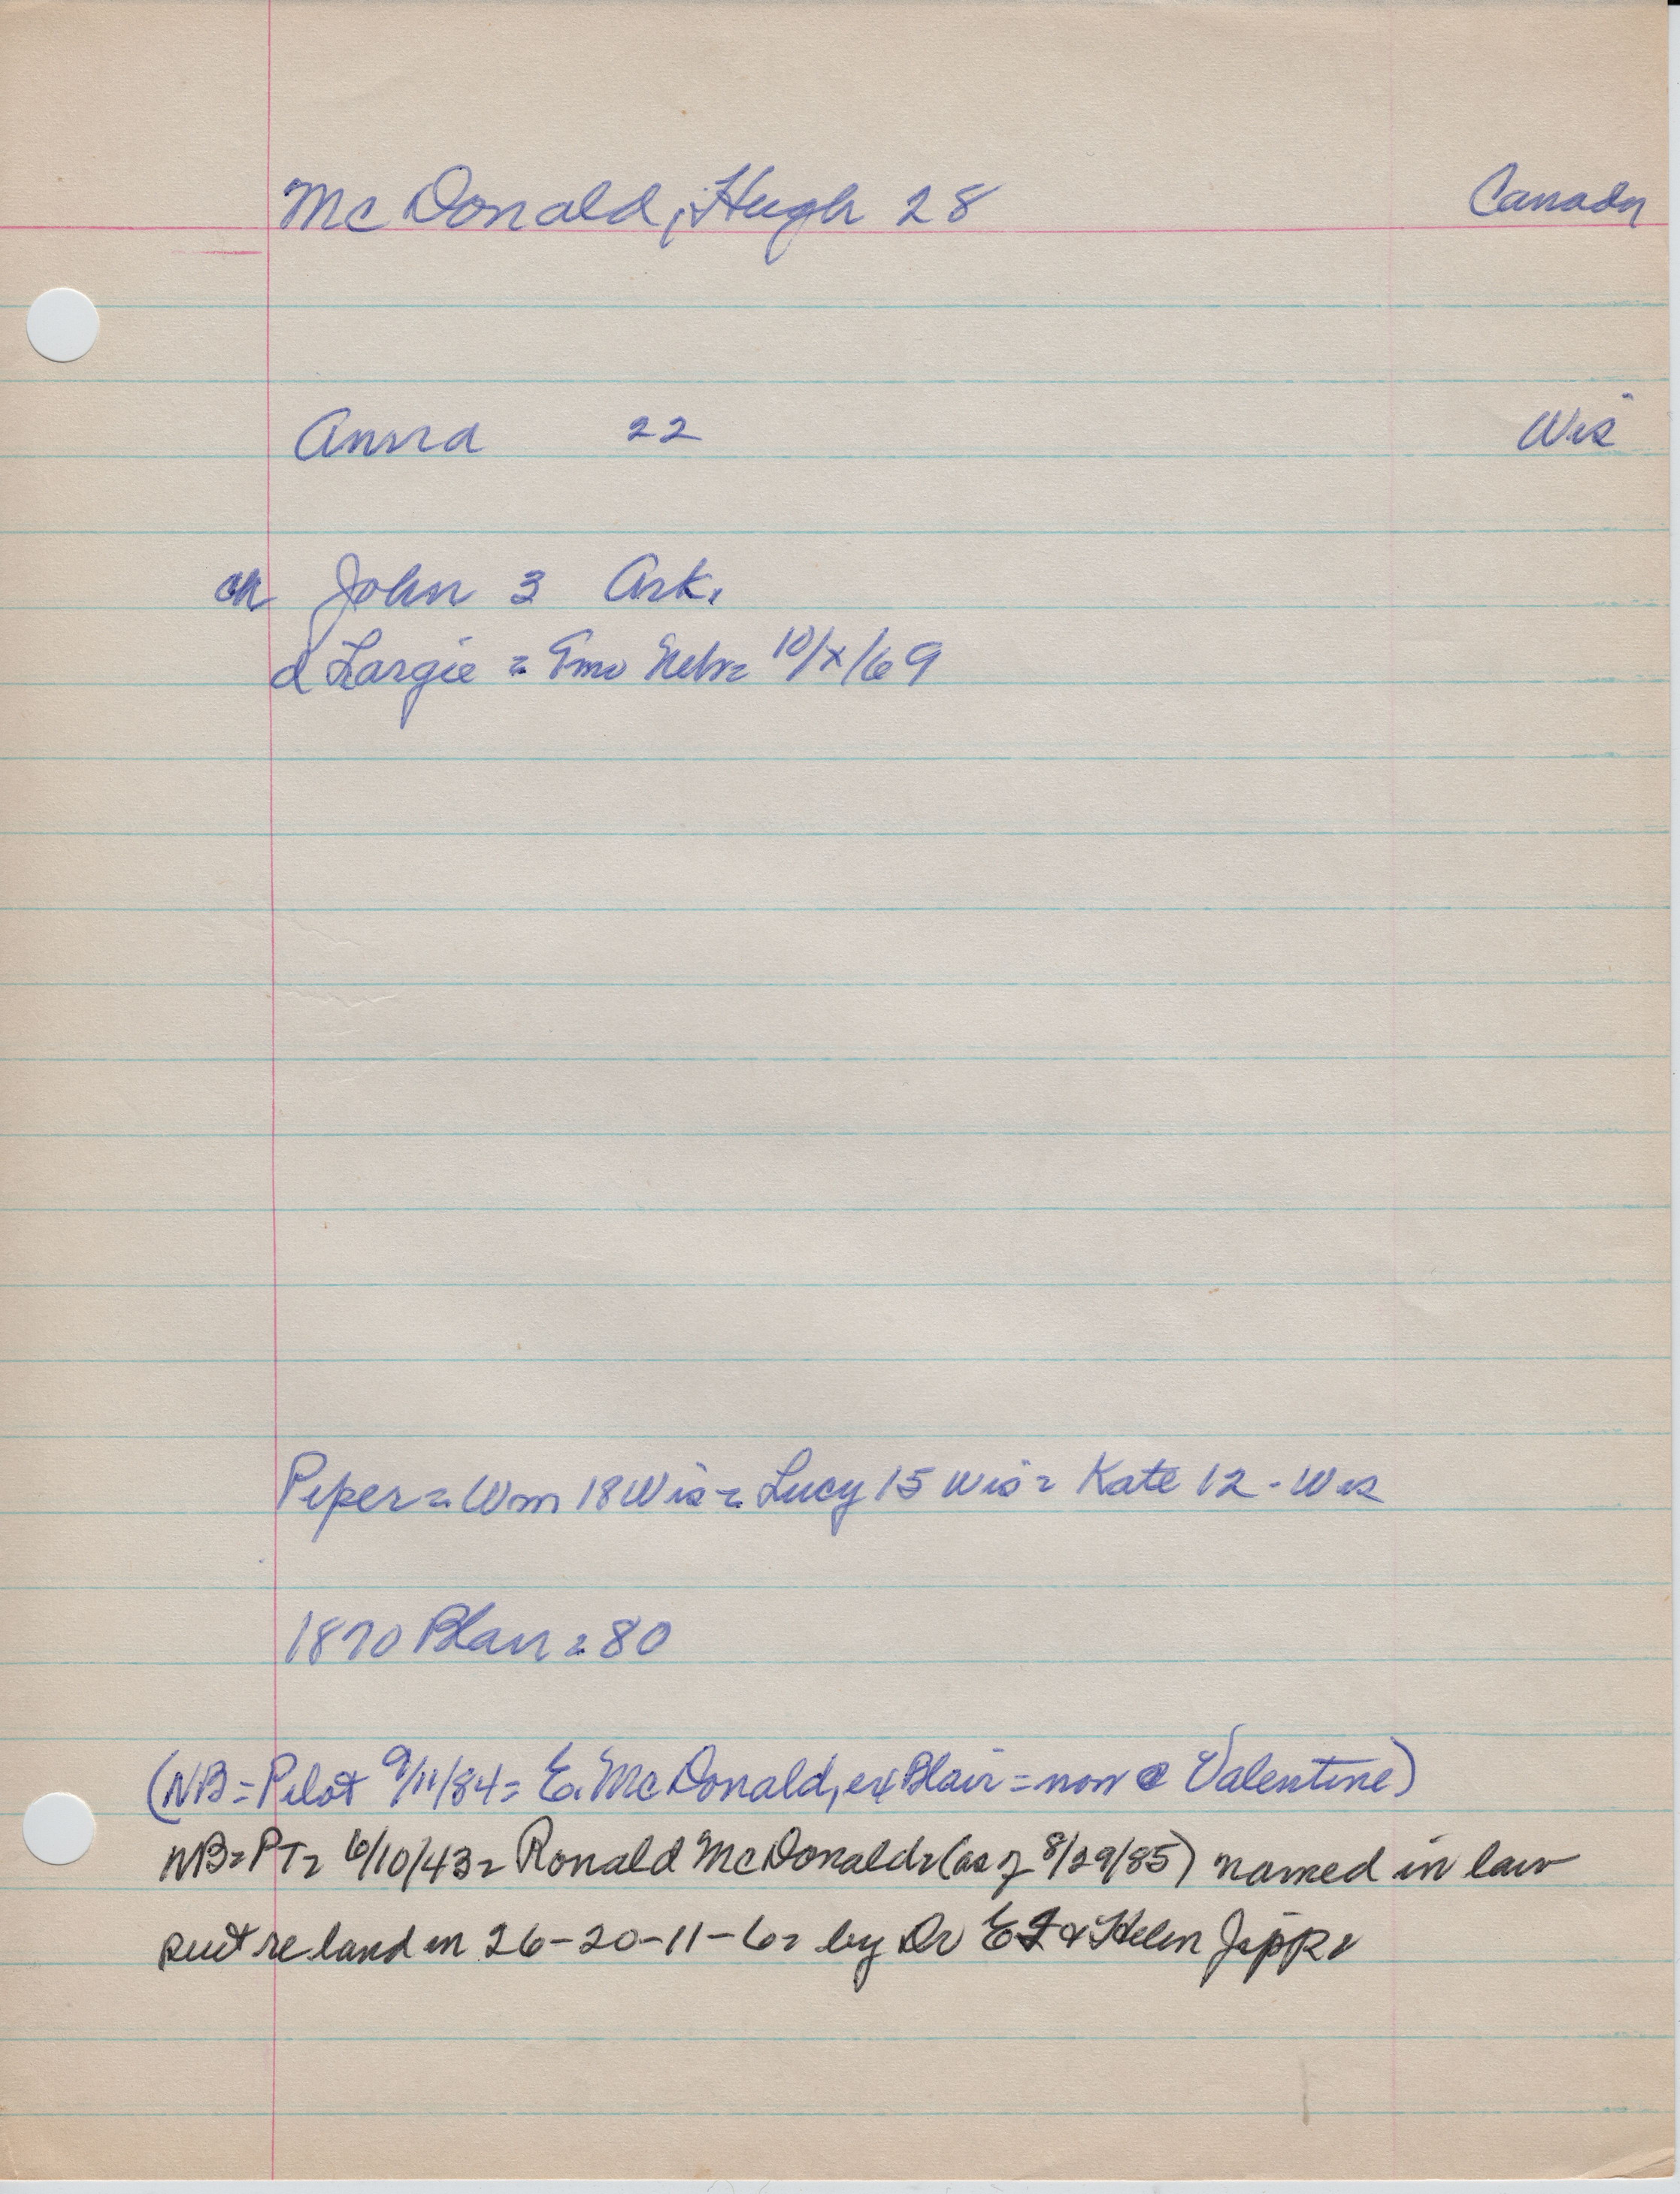 McDonald, Hugh 28 Canada
Anna 22 Wis
ch John 3 Ark.
d Largie = 8mo Nebr = 10/x/69
Piper = Wm 18 Wis = Lucy 15 Wis = Kate 12 - Wis
1870 Blair = 80
(NB = Pilot 9/11/84 = E. McDonald, ex Blair = now @ Valentine)
NB = PT = 6/10/43 = Ronald McDonald = (as of 8/29/85) named in law
suit re land in 26-20-11-6 = by Dr EJ & Helen